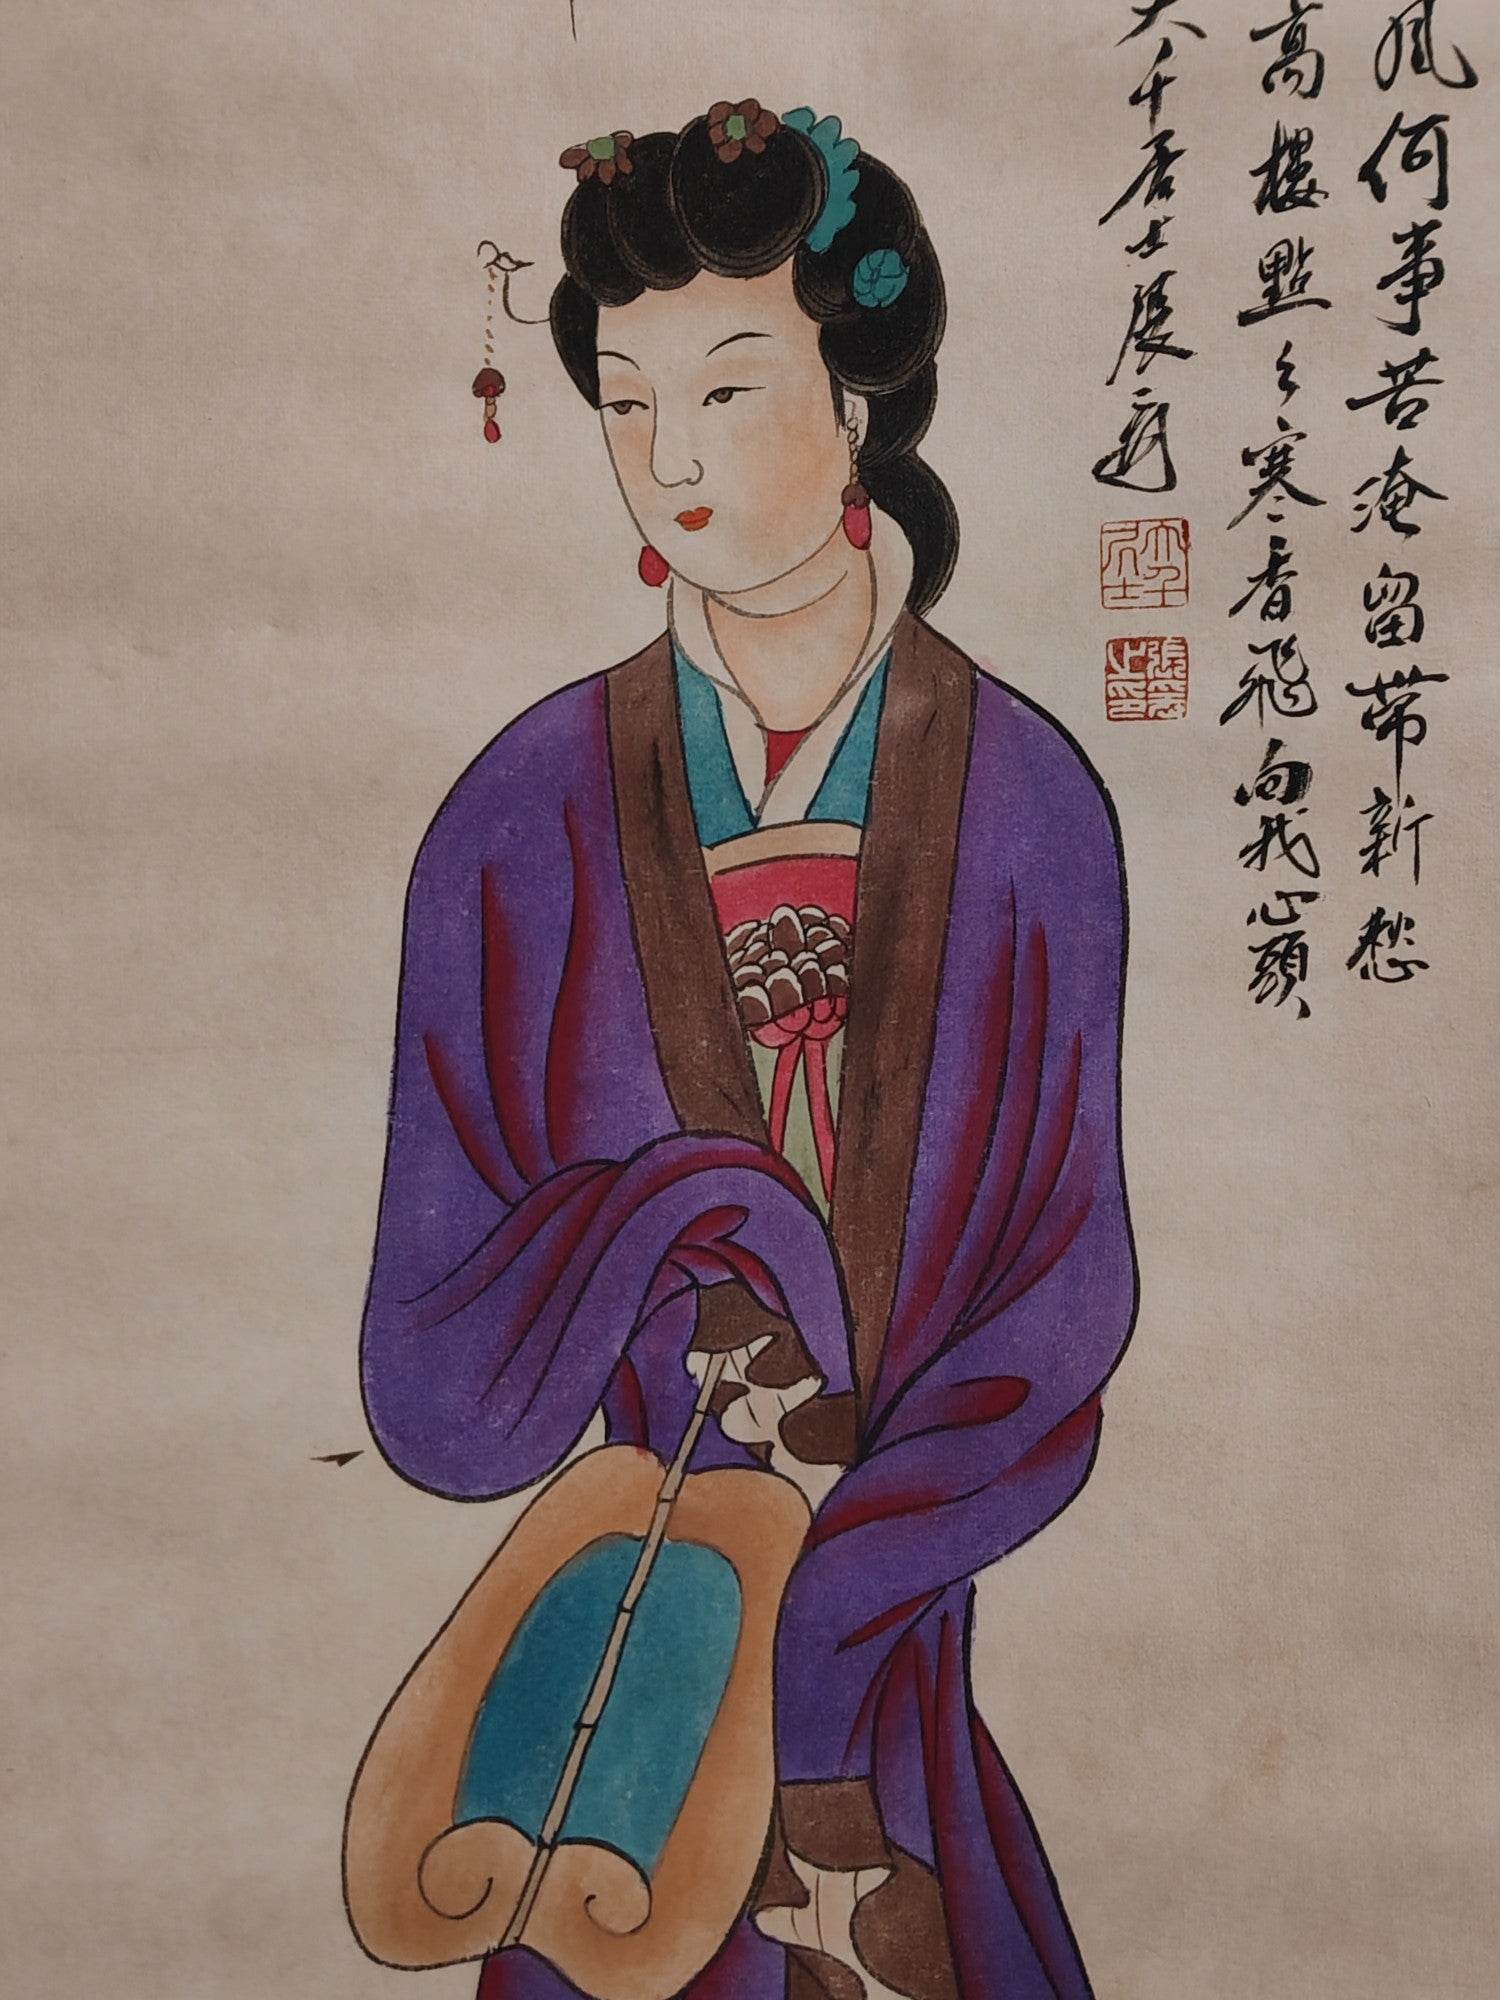 風何事苦淹留帶新愁
高樓點々寒香飛向我心頭
大千居士張爰
大千居士
張爰之印